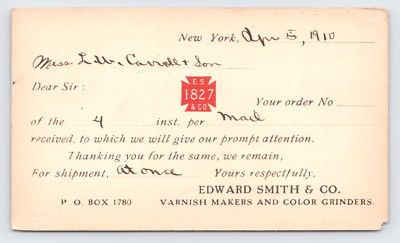 New York, Apr 5, 1910
Mess L. W. Carroll & Son
Dear Sir:
E. S.
1827
& CO.
Your order No
of the 4 inst. per Mail
received, to which we will give our prompt attention.
Thanking you for the same, we remain,
For shipment, at once Yours respectfully,
EDWARD SMITH & CO.
P. O. BOX 1780 VARNISH MAKERS AND COLOR GRINDERS.